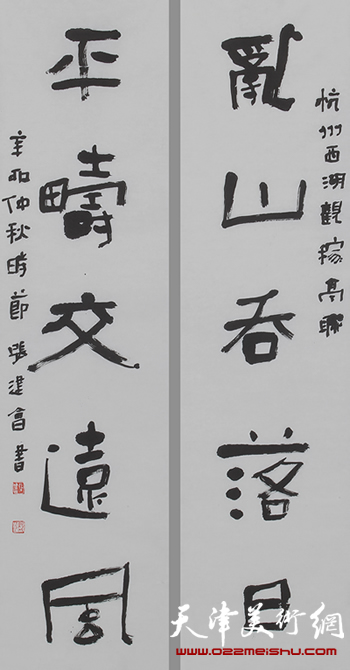 杭州西湖觀稼高聯
亂山吞落日
平疇交遠風
辛卯仲秋時節張建會書
天津美術網
www.022meishu.com